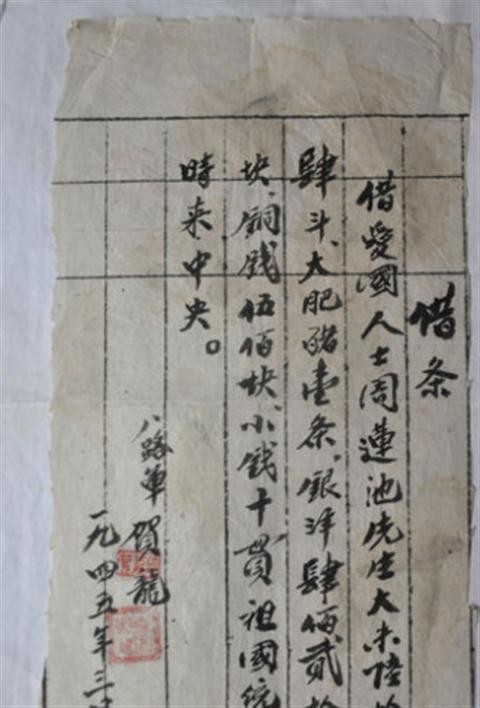 借条
借愛國人士周蓮池先生大米陸
肆斗、大肥豬壹条、銀洋肆佰贰拾
块、銅钱伍佰块、小钱十貫祖國统
時来中央。
八路軍 賀龍
一九四五年三